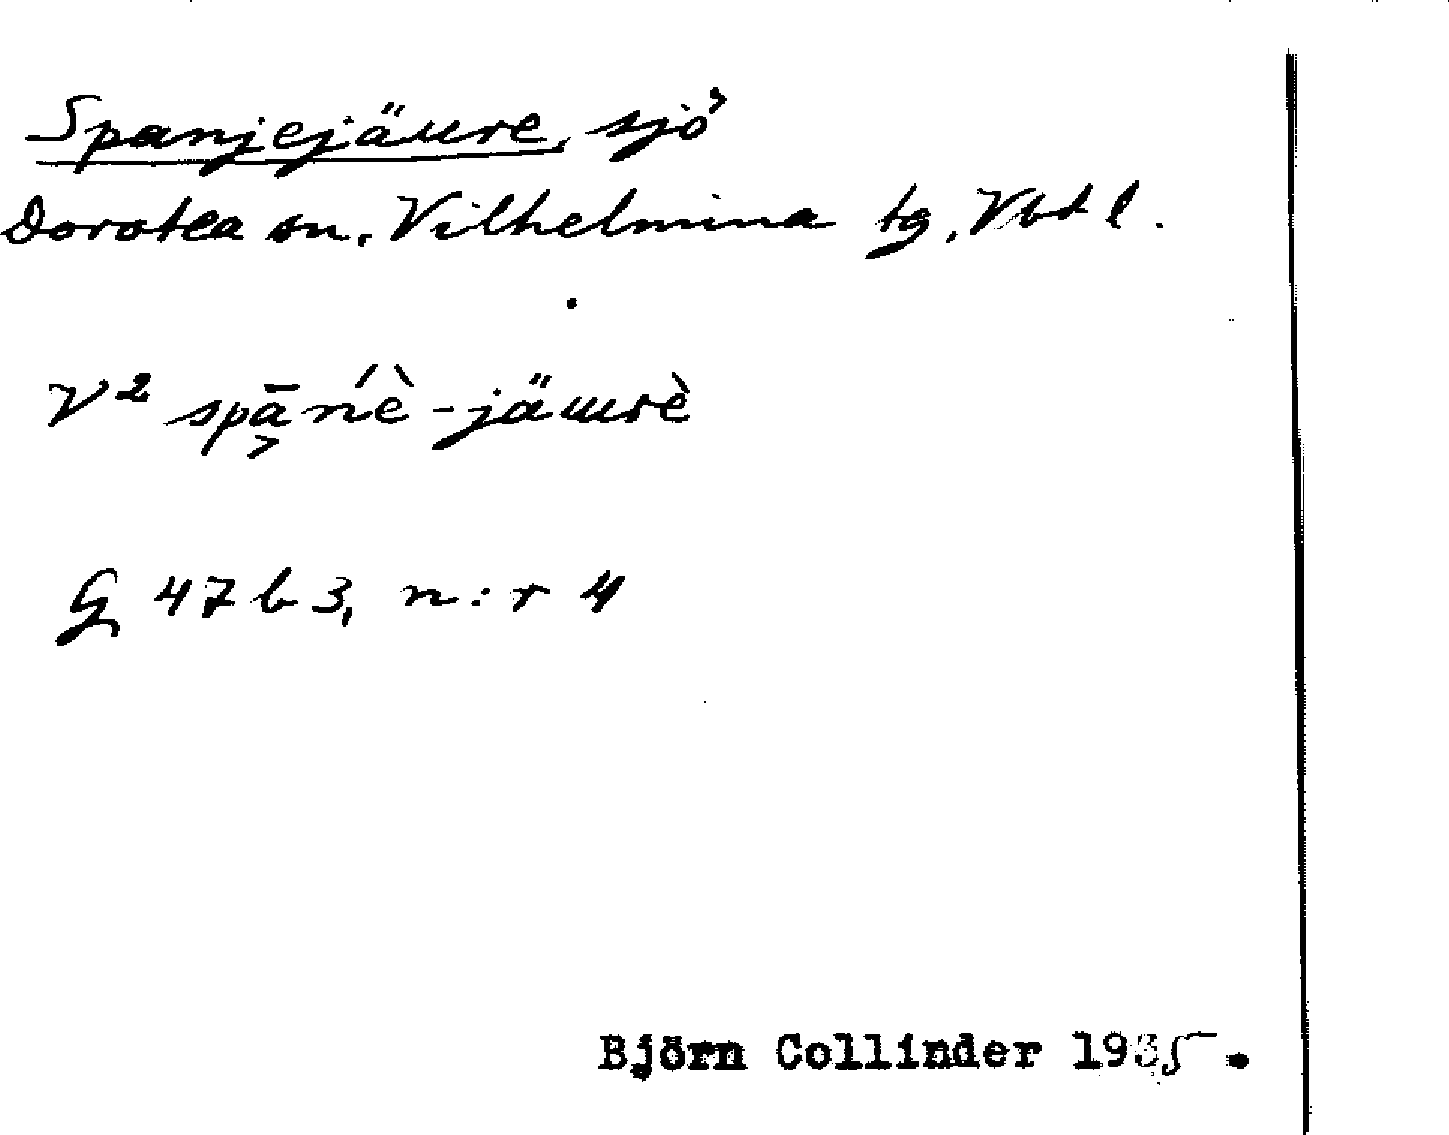 Spanjejäure, sjö
Dorotea sn, Vilhelmina tg, Vbtl.
V² spā̬ńè-jäɯrè
G 47 b 3, n:r 4
Björn Collinder 1935.